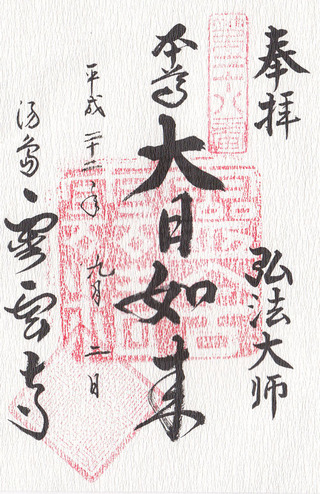 奉拝
弘法大師
本尊
大日如来
平成二十二年 九月 二日
湯島
霊雲寺